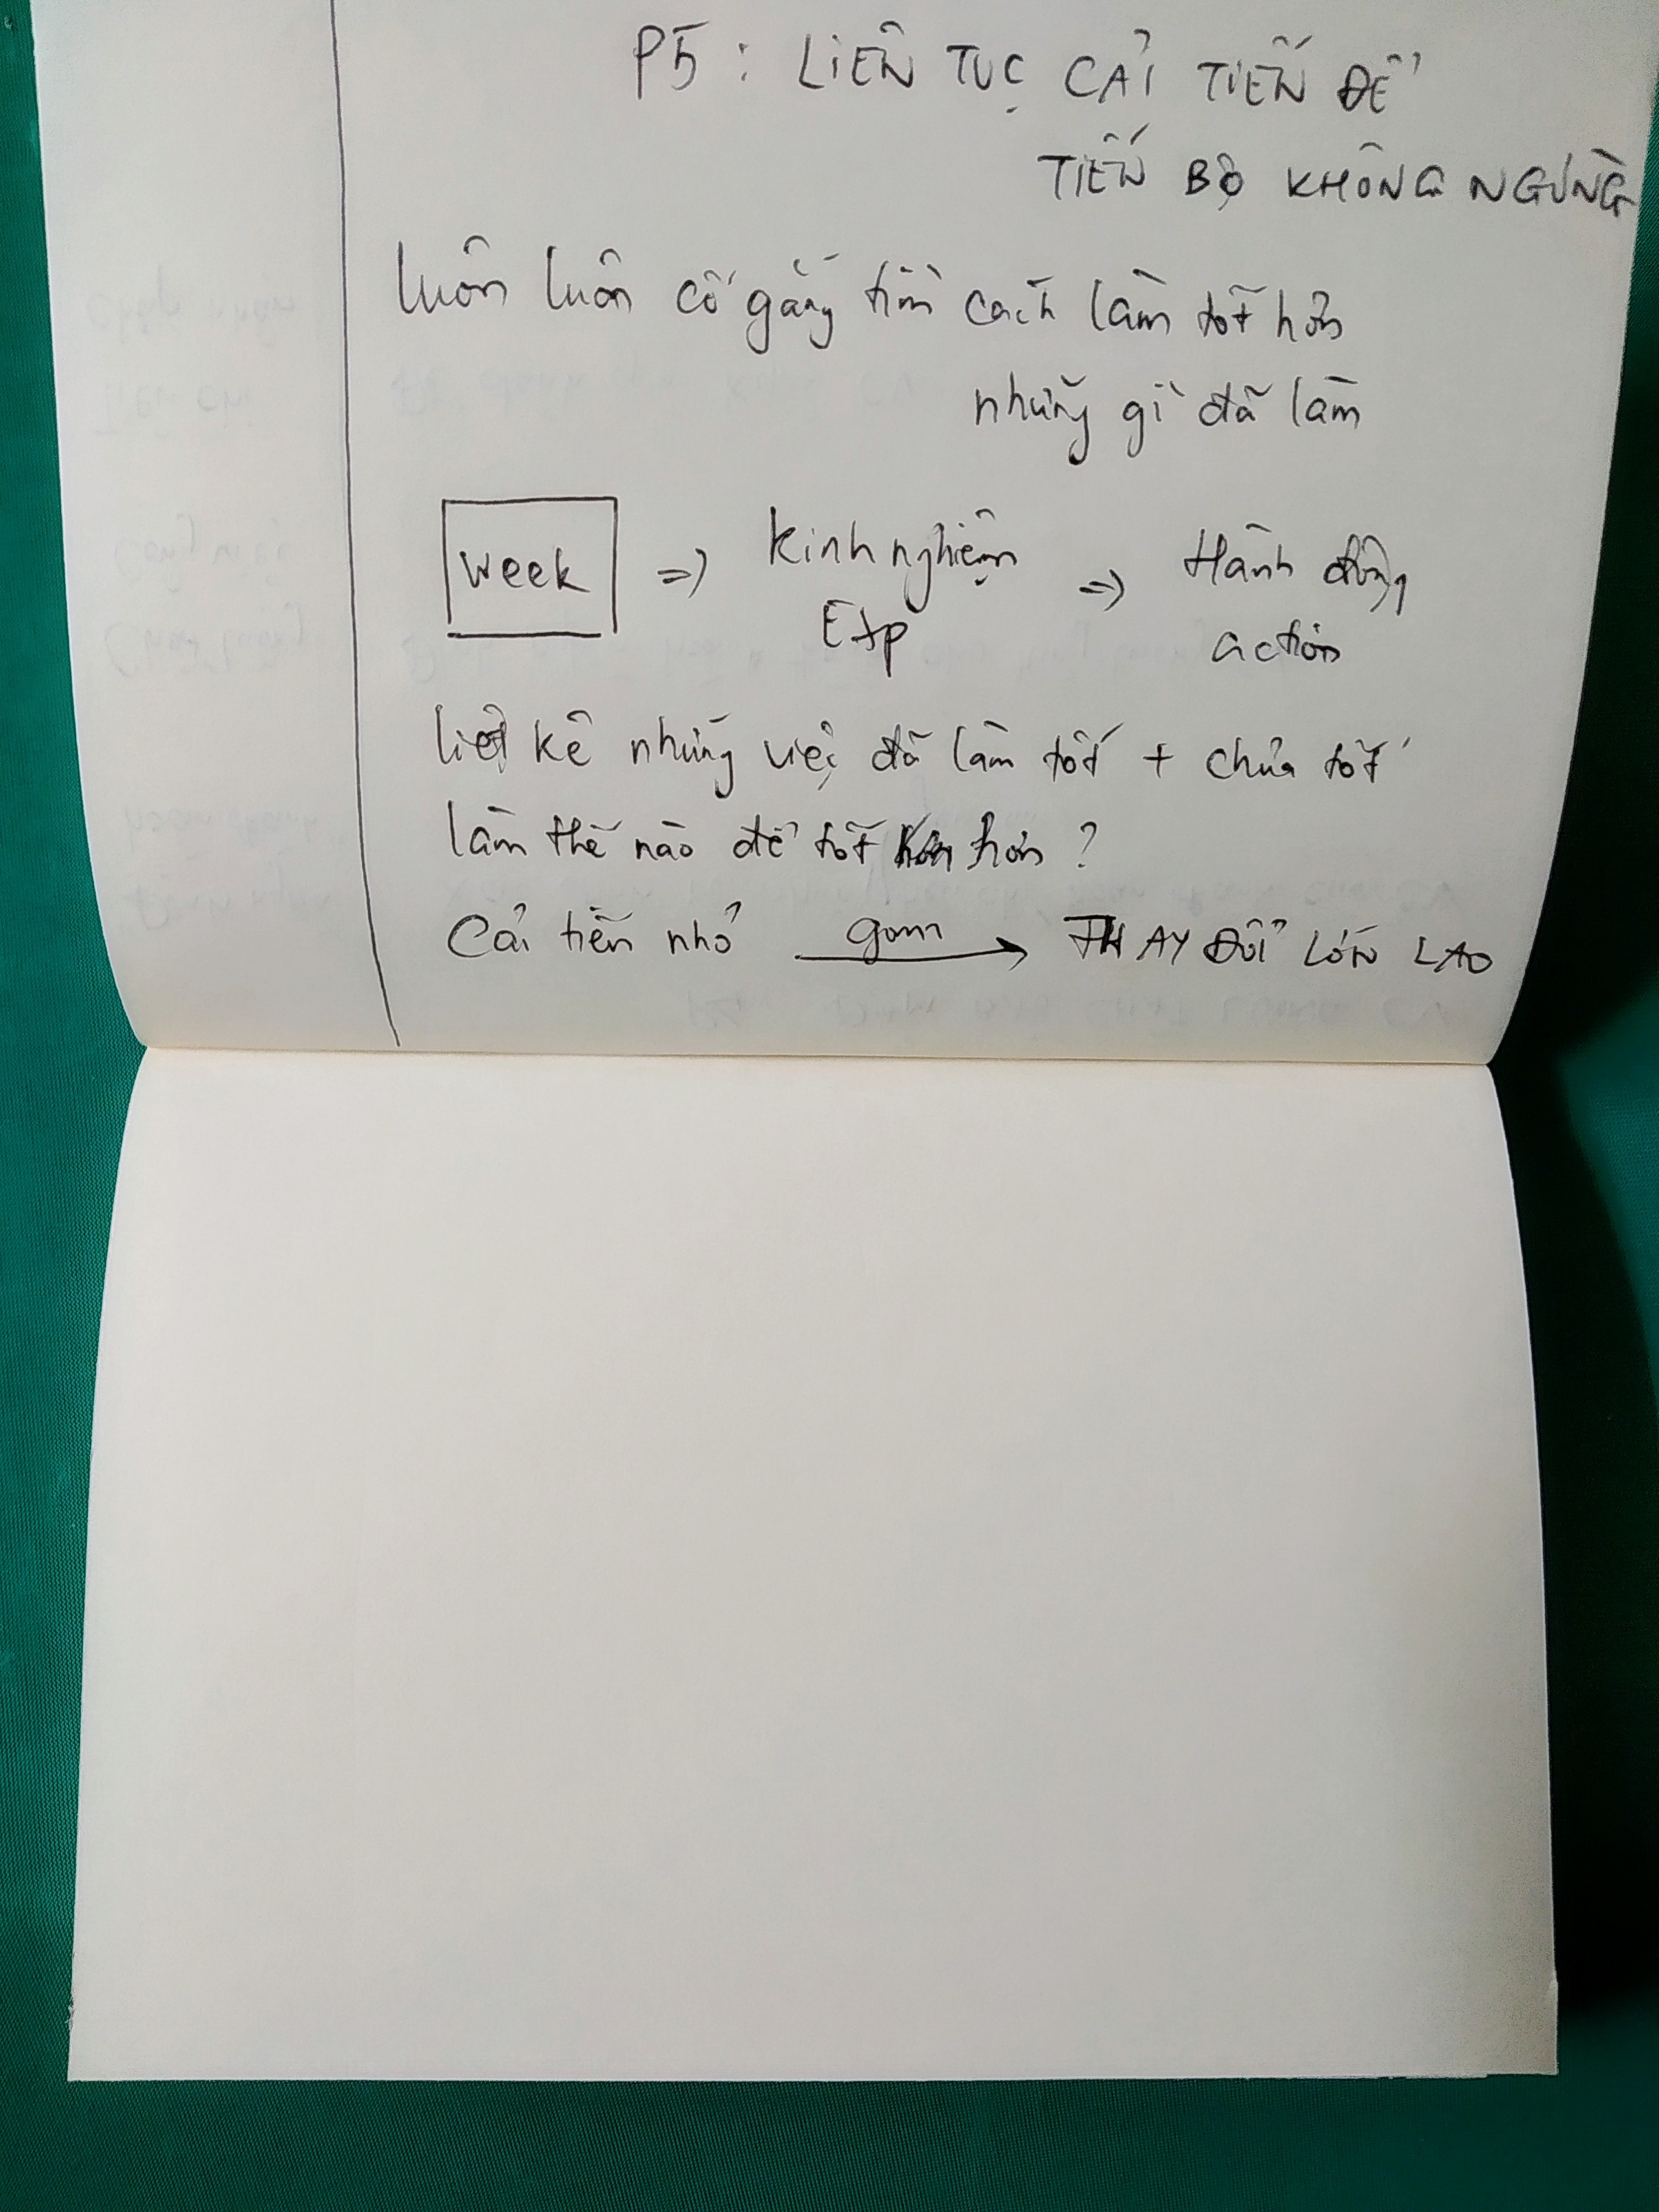 P5 : LIÊN TỤC CẢI TIẾN ĐỂ
TIẾN BỘ KHÔNG NGỪNG
luôn luôn cố gắng tìm cách làm tốt hơn
những gì đã làm
week => kinh nghiệm => Hành động
Exp action
liệt kê những việc đã làm tốt + chưa tốt
làm thế nào để tốt hơn ?
Cải tiến nhỏ gom → THAY ĐỔI LỚN LAO